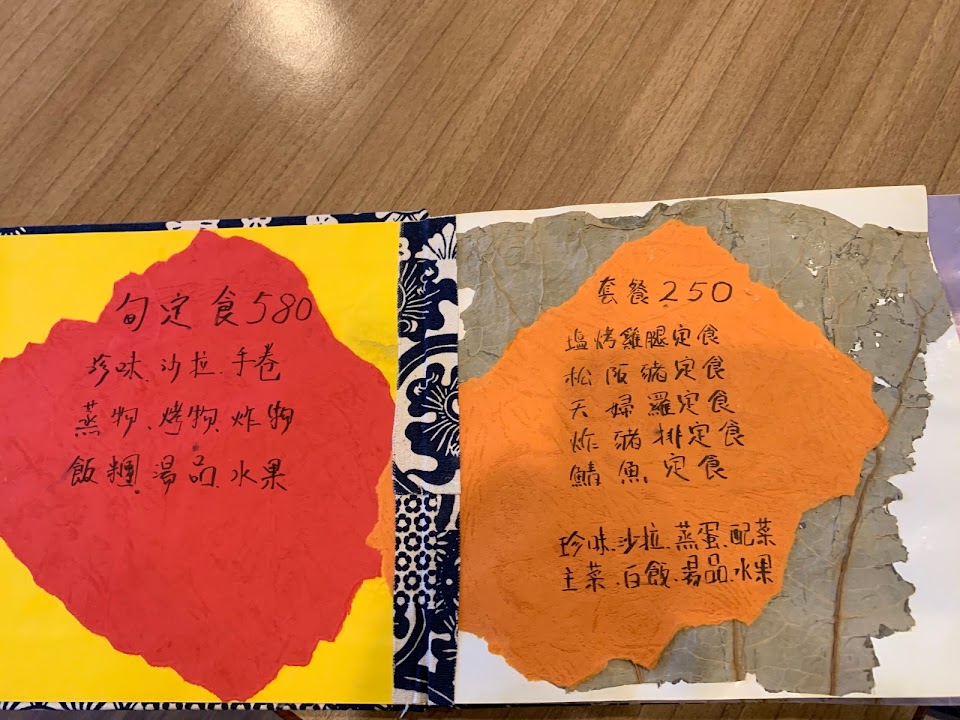 旬定食580
珍味.沙拉.手卷
蒸物.烤物.炸物
飯糰.湯品.水果
套餐250
塩烤雞腿定食
松阪豬定食
天婦羅定食
炸豬排定食
鯖魚定食
珍味.沙拉.蒸蛋.配菜
主菜.白飯.湯品.水果